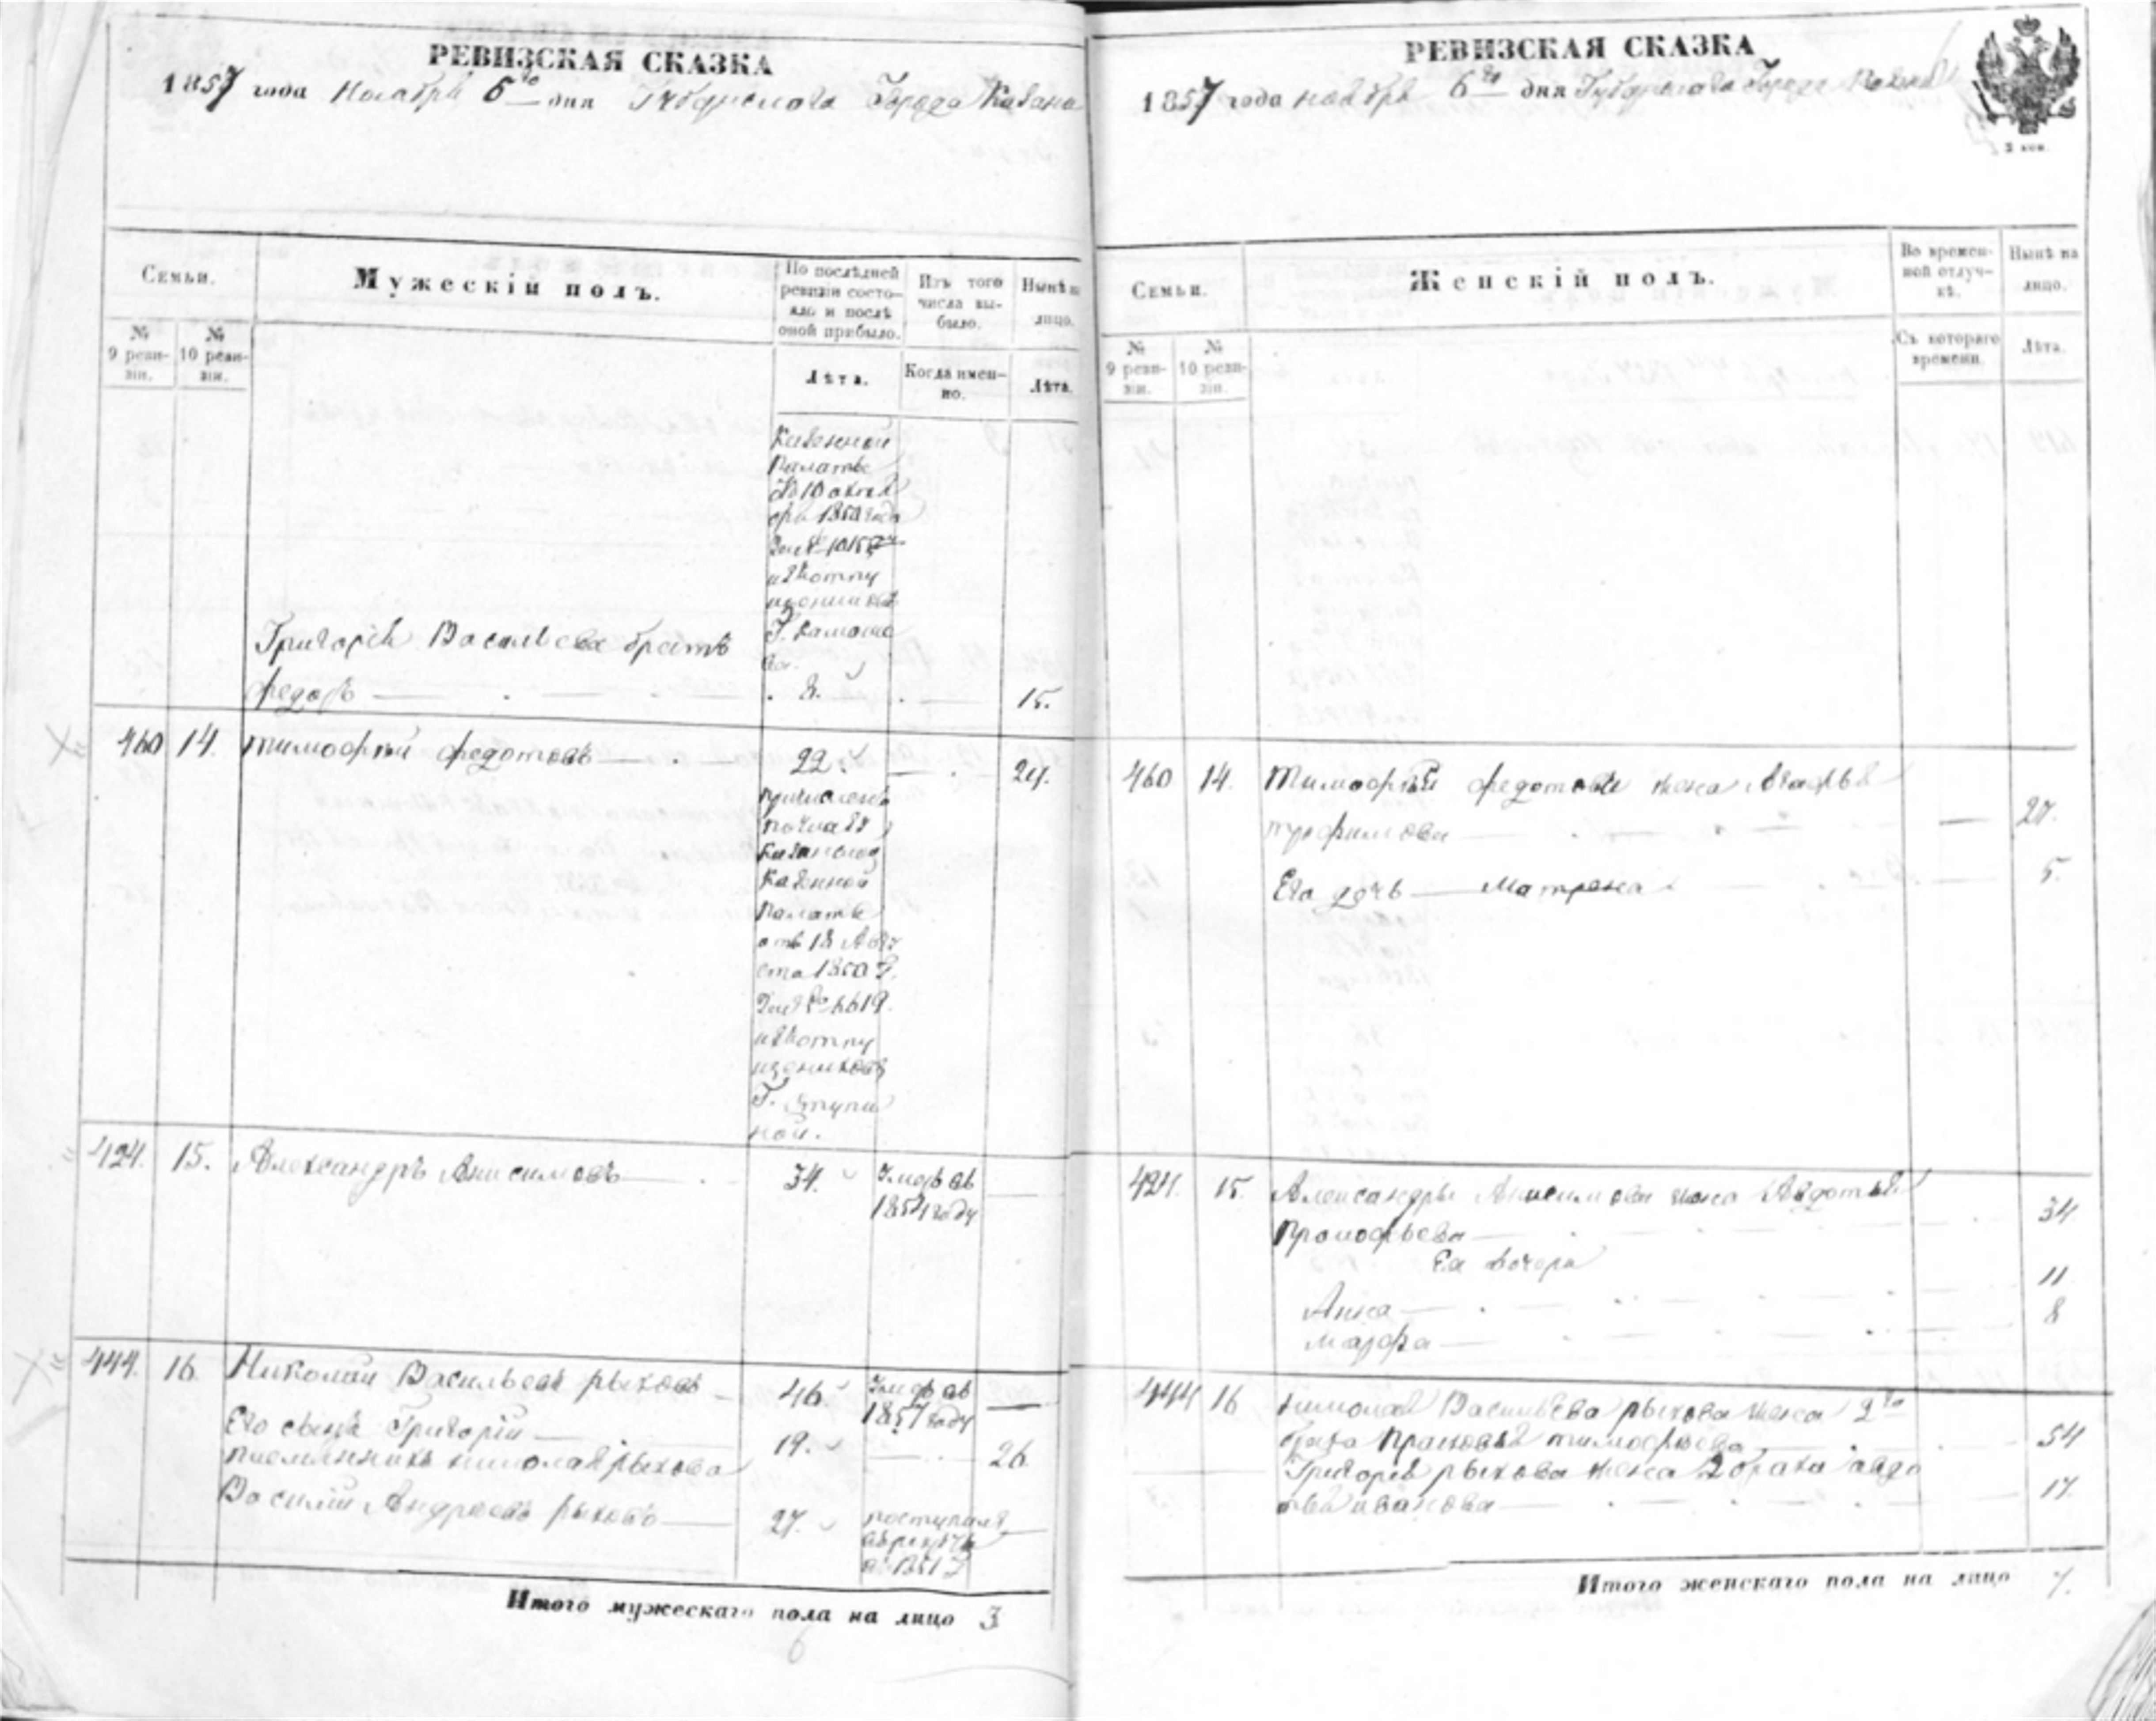 РЕВИЗСКАЯ СКАЗКА
1857 года Ноября 6го дня Губернскаго Города Казани
Семьи.
Мужескій полъ.
По послѣдней ревизіи состояло и послѣ оной прибыло.
Изъ того числа выбыло.
Нынѣ на лицо.
№ 9 ревизіи.
№ 10 ревизіи.
Лѣта.
Когда именно.
Лѣта.
Казенной
Палаты
октяб
ря 1850 года
за №
изъ отпу
щенныхъ
Г.
Григорія Васильева братъ
Федоръ 8. 15.
460 14. Тимофей Федотовъ 22. 29.
причисленъ
по указу
Казанской
Казенной
Палаты
отъ 18 Авгу
ста 1850 г.
за № 6619.
изъ отпу
щенниковъ
Г. Ступи
ной.
424. 15. Александръ Анисимовъ 34. Умеръ въ
1854 году
444. 16. Николай Васильевъ Рыковъ 46. Умеръ въ
1857 году
Его сынъ Григорій 19. 26
племянникъ Николая Рыкова
Василій Андреевъ Рыковъ 27. поступилъ
въ рекруты
въ 1851 г.
Итого мужескаго пола на лицо 3
РЕВИЗСКАЯ СКАЗКА
1857 года ноября 6го дня Губернскаго Города Казани
2 коп.
Семьи.
Женскій полъ.
Во временной отлучкѣ.
Нынѣ на лицо.
№ 9 ревизіи.
№ 10 ревизіи.
Съ котораго времени.
Лѣта.
460 14. Тимофея Федотова жена Агафья
Трофимова 27.
Его дочь Матрена 5.
424. 15. Александры Анисимова жена Авдотья
Прокофьева 34
Ея дочери
Анна 11
Марфа 8
444 16 Николая Васильева Рыкова жена 2го
брака Прасковья Тимофеева 54
Григорья Рыкова жена 2 брака Авдо
тья Иванова 17.
Итого женскаго пола на лицо 7.